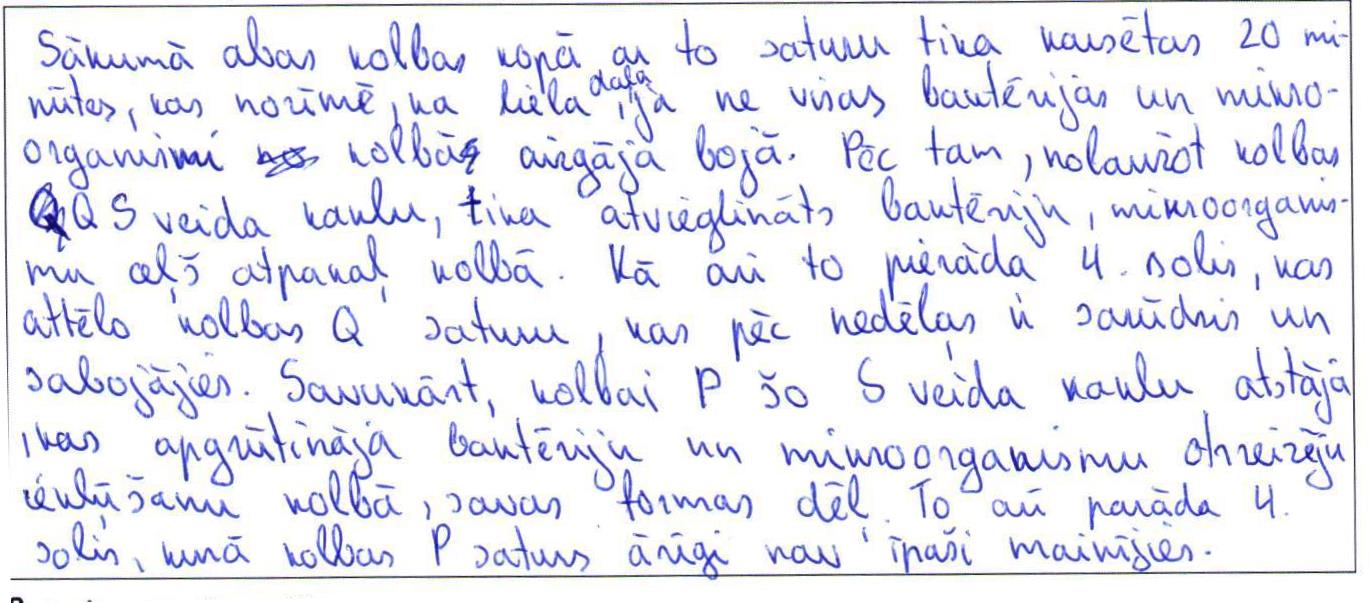 Sākumā abas kolbas kopā ar to saturu tika karsētas 20 mi-
nūtes, kas nozīmē, ka liela daļa, ja ne visas baktērijas un mikro-
organismi kolbās aizgāja bojā. Pēc tam, nolaužot kolbas
Q S veida kaklu, tika atvieglināts baktēriju, mikroorganis-
mu ceļš atpakaļ kolbā. Kā arī to pierāda 4. solis, kas
attēlo kolbas Q saturu, kas pēc nedēļas ir saūdzis un
sabojājies. Savukārt, kolbai P šo S veida kaklu atstāja
, kas apgrūtināja baktēriju un mikroorganismu otrreizēju
iekļūšanu kolbā, savas formas dēļ. To arī parāda 4.
solis, kurā kolbas P saturs ārīgi nav īpaši mainījies.